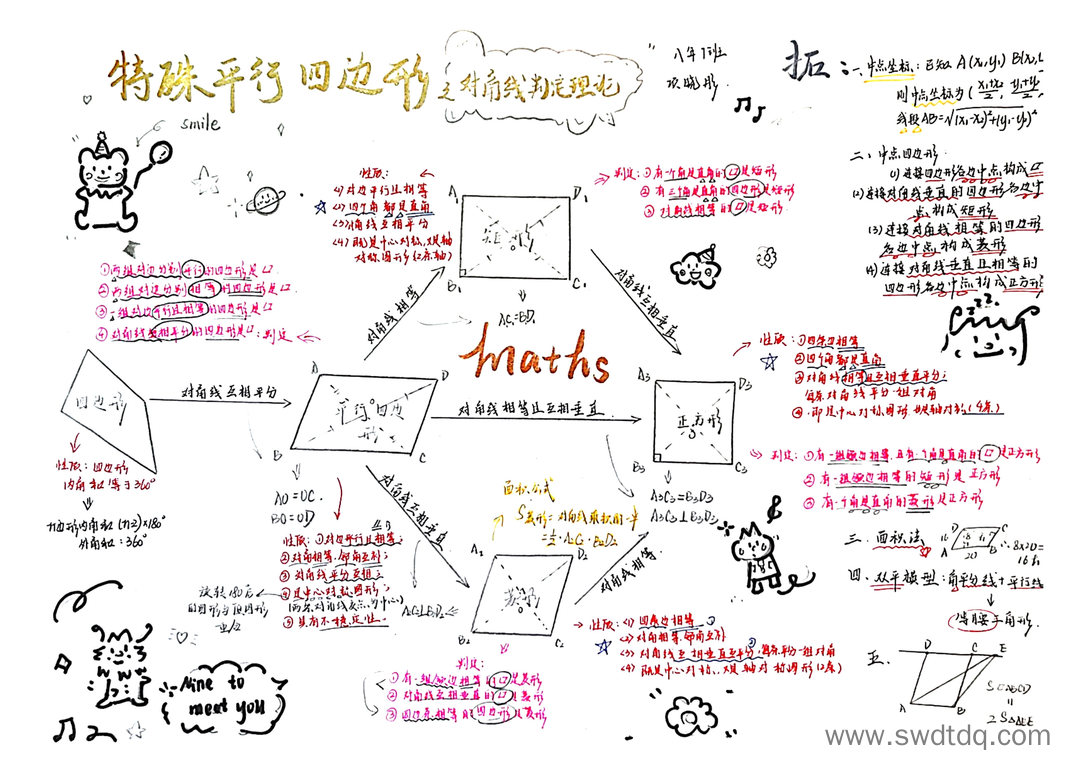 特殊平行四边形之对角线判定理论
八年7班
smile
拓:
一、中点坐标:已知A(x₁,y₁) B(x₂,
则中点坐标为(x₁+x₂/2, y₁+y₂/2,
线段AB=√(x₁-x₂)²+(y₁-y₂)²
二、中点四边形.
(1)连接四边形各边中点,构成▱
(2)连接对角线垂直的四边形各边中
点,构成矩形
(3)连接对角线相等的四边形
各边中点构成菱形
(4)连接对角线垂直且相等的
四边形各边中点构成正方形
zzz
性质:
(1)对边平行且相等
(2)四个角都是直角
(3)对角线互相平分
(4)既是中心对称,又是轴
对称图形(2条轴)
A₁
D₁
矩形
B₁
C₁
AC₁=BD₁
判定:①有一个角是直角的▱是矩形
②有三个角是直角的四边形是矩形
③对角线相等的▱是矩形
①两组对边分别平行的四边形是▱
②两组对边分别相等的四边形是▱
③一组对边平行且相等的四边形是▱
④对角线互相平分的四边形是▱:判定
对角线相等
对角线互相垂直
maths
四边形
对角线互相平分
A
D
平行四边形
B
C
对角线相等且互相垂直
A₃
D₃
正方形
B₃
C₃
A₃C₃=B₃D₃
A₃C₃⊥B₃D₃
性质:①四条边相等
②四个角都是直角
③对角线相等且互相垂直平分;
每条对角线平分一组对角
④即是中心对称图形也是轴对称(4条)
判定:①有一组邻边相等,且有一个角是直角的▱是正方形
②有一组邻边相等的矩形是正方形
③有一个角是直角的菱形是正方形
性质:四边形
内角和等于360°
n边形内角和(n-2)×180°
外角和:360°
AO=OC.
BO=OD
性质:①对边平行且相等
②对角相等,邻角互补;
③对角线平分互相;
④是中心对称图形;
(两条对角线交点为中心)
⑤具有不稳定性.
旋转180后
的图形与原图形
重合
对角线互相垂直
面积公式
S菱形=对角线乘积的一半
=½·A₂C₂·B₂D₂
A₂
D₂
菱形
B₂
C₂
对角线相等.
性质:(1)四条边相等
(2)对角相等,邻角互补
(3)对角线互相垂直互平分,每条平分一组对角
(4)既是中心对称,又是轴对称图形(2条)
判定:
①有一组邻边相等的▱是菱形
②对角线互相垂直的▱是菱形
③四边条相等的四边形是菱形
三、面积法
D
C
16
8
A
20
B
∴8×20=
四、双平模型:角平分线+平行线
等腰三角形.
五.
D
C
E
A
B
S▱ABCD
=
2S△ABE
Nine to
meet you
www.swdtdq.com